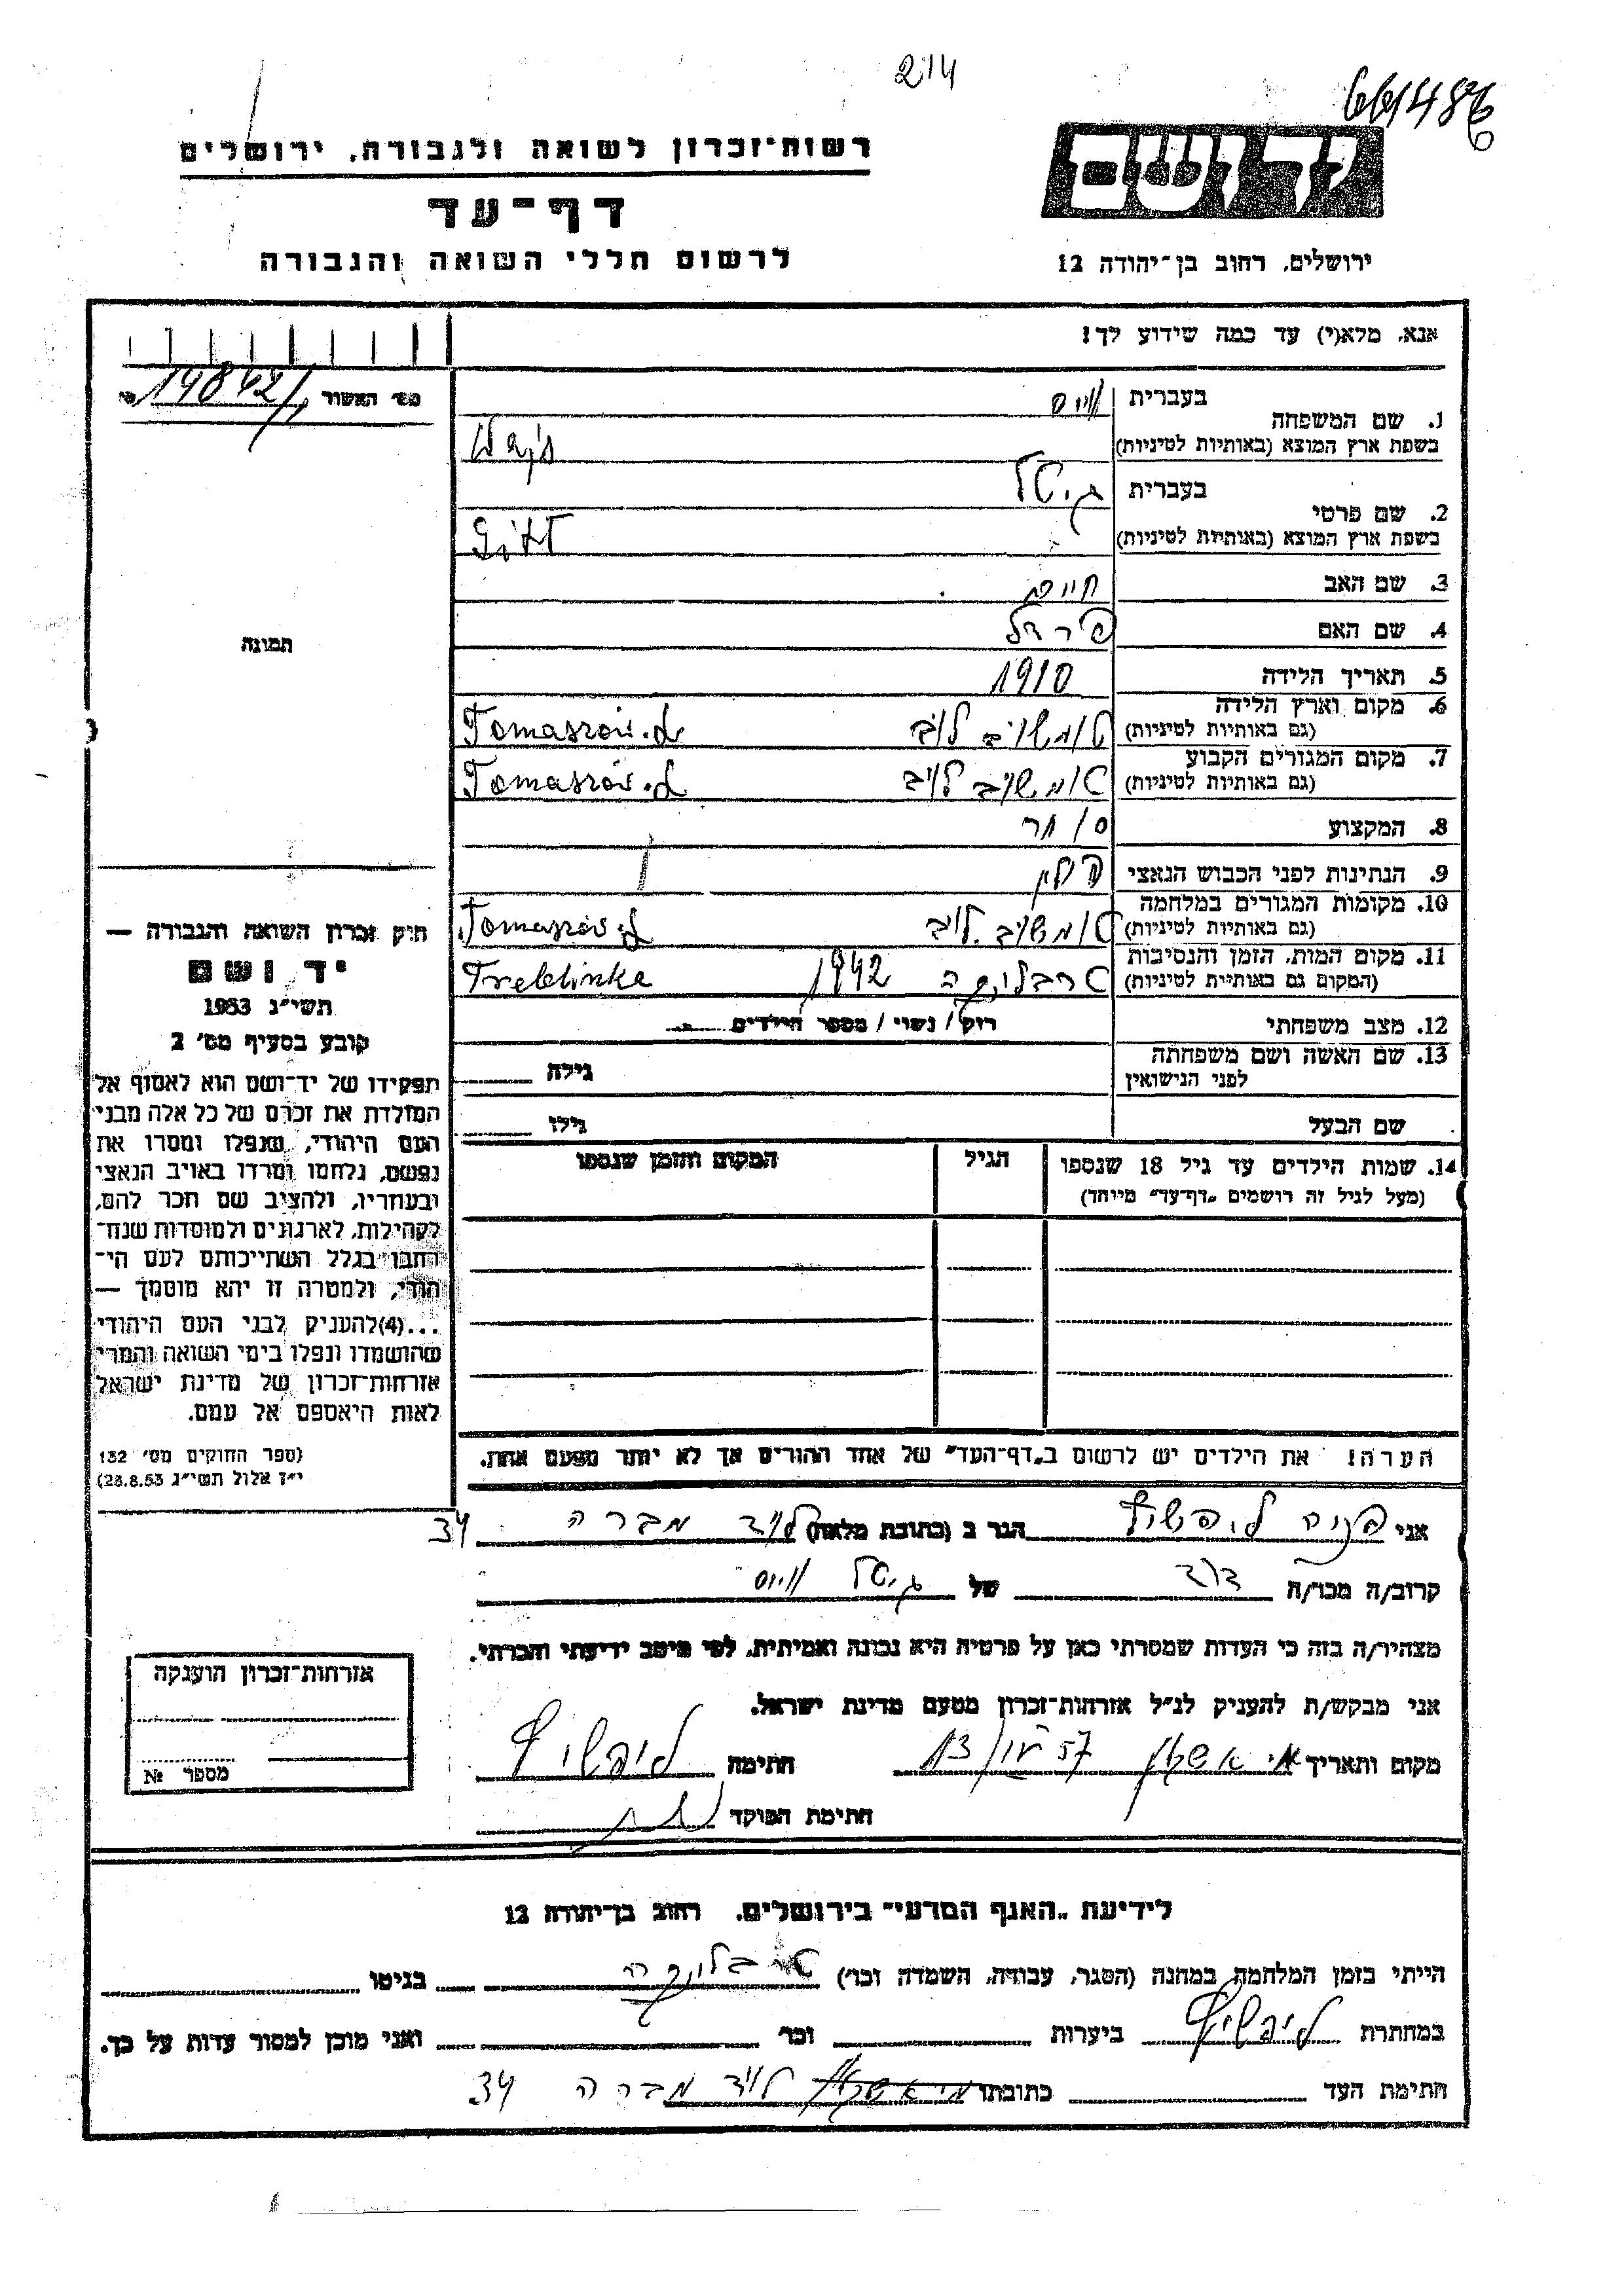 214
661486
רשות־זכרון לשואה ולגבורה, ירושלים
יד ושם
דף־עד
לרשום חללי השואה והגבורה
ירושלים, רחוב בן־יהודה 12
אנא, מלא(י) עד כמה שידוע לך!
מס' האשור 14842
1. שם המשפחה
בעברית ווייס
בשפת ארץ המוצא (באותיות לטיניות) Wajs
2. שם פרטי
בעברית גיטל
בשפת ארץ המוצא (באותיות לטיניות) Gitl
3. שם האב חיים
4. שם האם פירל
5. תאריך הלידה 1910
6. מקום וארץ הלידה
(גם באותיות לטיניות) טומשוב לוב Tomaszów.L
7. מקום המגורים הקבוע
(גם באותיות לטיניות) טומשוב לוב Tomaszów.L
8. המקצוע סוחר
9. הנתינות לפני הכבוש הנאצי פולין
10. מקומות המגורים במלחמה
(גם באותיות לטיניות) טומשוב לוב Tomaszów.L
11. מקום המות, הזמן והנסיבות
(המקום גם באותיית לטיניות) טרבלינקה 1942 Treblinke
12. מצב משפחתי רוק/נשוי/מספר הילדים
13. שם האשה ושם משפחתה
לפני הנישואין גילה
שם הבעל גילו
14. שמות הילדים עד גיל 18 שנספו
(מעל לגיל זה רושמים „דף־עד" מייחד)
הגיל
המקום והזמן שנספו
הערה! את הילדים יש לרשום ב„דף־העד" של אחד ההורים אך לא יותר מפעם אחת.
תמונה
חוק זכרון השואה והגבורה —
יד ושם
תשי"ג 1953
קובע בסעיף מס' 2
תפקידו של יד־ושם הוא לאסוף אל
המולדת את זכרם של כל אלה מבני
העם היהודי, שנפלו ומסרו את
נפשם, נלחמו ומרדו באויב הנאצי
ובעחריו, ולהציב שם חכר להם,
לקהילות, לארגונים ולמוסדות שנח־
רחבו בגלל השתייכותם לעם הי־
הודי, ולמטרה זו יהא מוסמך —
...(4)להעניק לבני העם היהודי
שהושמדו ונפלו בימי השואה והמרי
אזרחות־זכרון של מדינת ישראל
לאות היאספם אל עמם.
(ספר החוקים מס' 132
י"ז אלול תשי"ג 28.8.53)
אני פניה ליפשיץ הגר ב (כתובת מלאה) לוד מברה 34
קרוב/ה מכר/ה דוד של גיטל ווייס
מצהיר/ה בזה כי העדות שמסרתי כאן על פרטיה היא נכונה ואמיתית, לפי מיטב ידיעתי והכרתי.
אני מבקש/ת להעניק לנ"ל אזרחות־זכרון מטעם מדינת ישראל.
מקום ותאריך 57 13 חתימה ליפשיץ
חתימת הפוקד
אזרחות־זכרון הוענקה
מספר №
לידיעת „האגף המדעי" בירושלים, רחוב בן־יהודה 12
הייתי בזמן המלחמה במחנה (הסגר, עבודה, השמדה וכו') טרבלינקה בגיטו
במחתרת ליפשיץ ביערות וכו' ואני מוכן למסור עדות על כך.
חתימת העד כתובתו לוד מברה 34